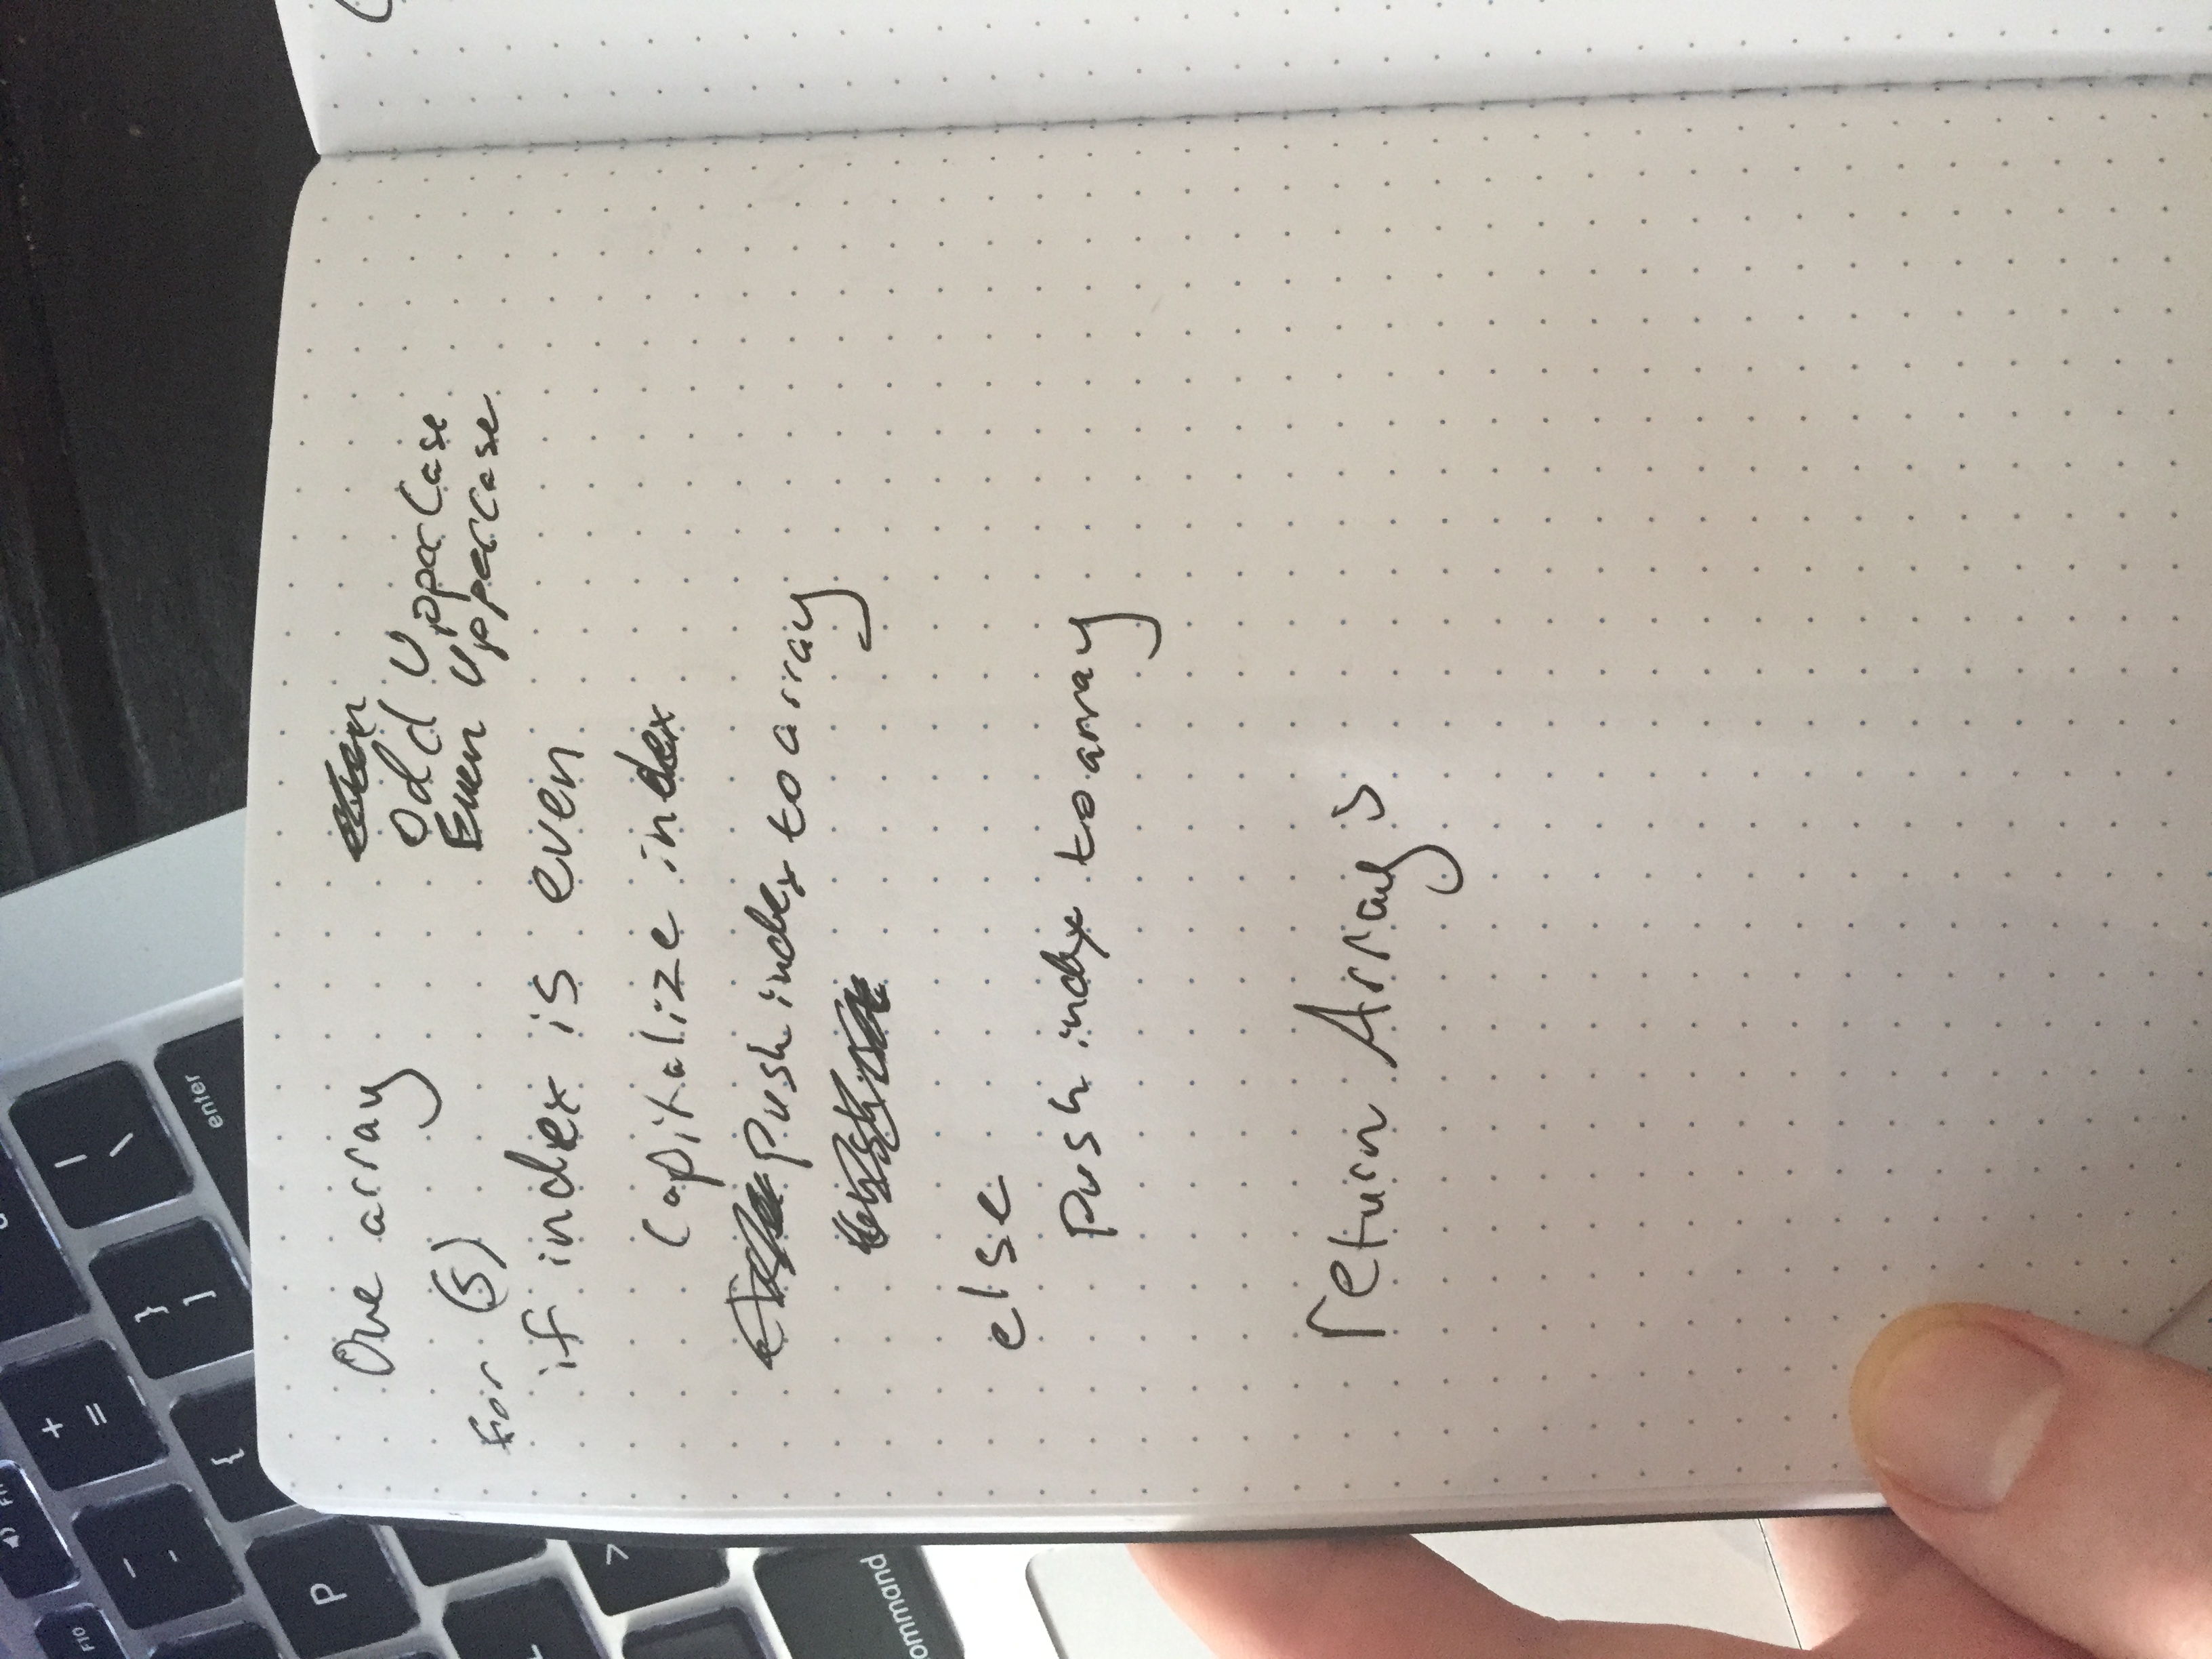 F10
+
=
-
|
\
}
]
{
enter
P
>
command
One array
Odd UpperCase
Even Uppercase
for (s)
if index is even
Capitalize index
push index to array
else
push index to array
return Arrays